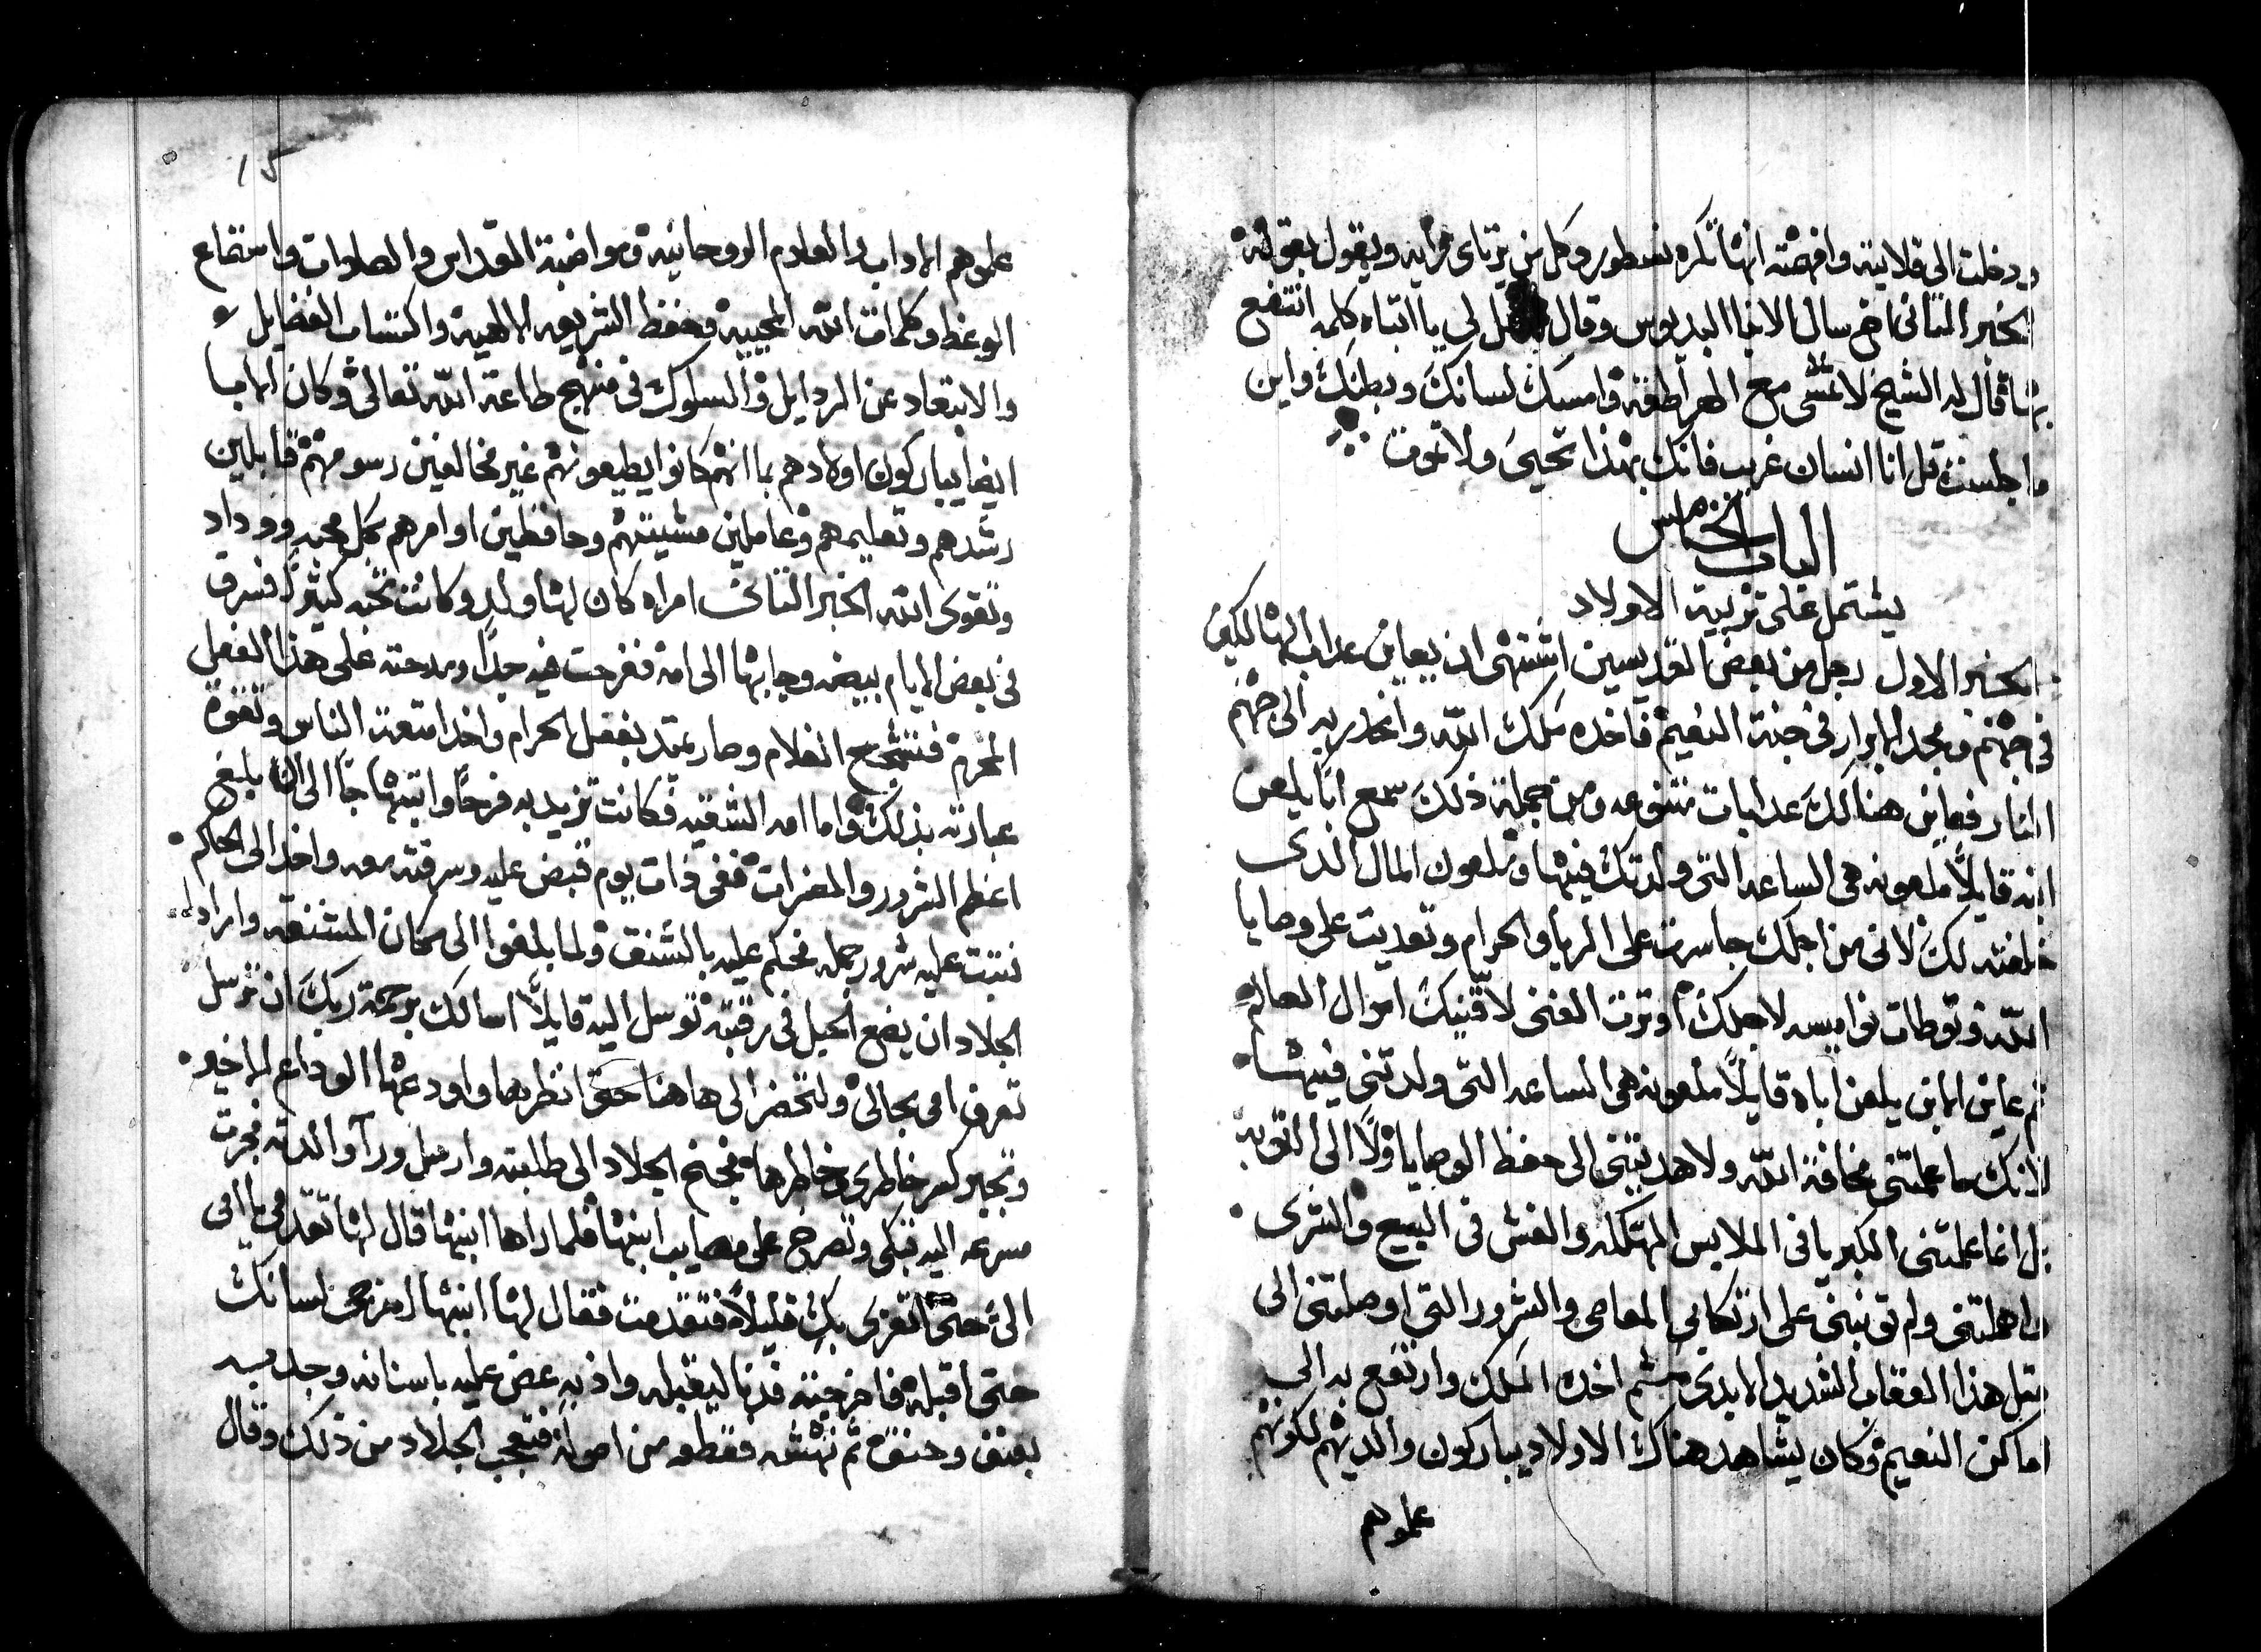 ودخلت الى قلايته وافهمته انها تكره نسطور وكل من يرتاى برأيه ويقول بقوله
الخبر الثانى اخ سال الانبا ايسيدوس وقال قل لى يا ابتاه كلمه انتفع
بها قال له الشيخ لا تمشى مع الهراطقه وامسك لسانك وبطنك واين
ما جلست قل انا انسان غريب فانك بهذا تحيى ولا تموت
الباب الخامس
يشتمل على تربية الاولاد
الخبر الاول رجل من بعض القديسين اشتهى ان يعاين عداب الهالكين
فى جهنم ومجد الابرار فى جنة النعيم فاخده ملاك الله وانحدر به الى جهنم
النار فعاين هنالك عدابات متنوعه ومن جملة ذلك سمع ابًا يلعن
ابنه قايلًا ملعونه هى الساعه التى ولدتك فيها وملعون المال الدى
خلفته لك لانى من اجلك جاسرت على الربا والحرام وتعديت على وصايا
الله وتوطات نواميسه لاجلك اوترت الغنى لاقنيك اموال العالم
ثم عاين الابن يلعن اباه قايلًا ملعونه هى الساعه التى ولدتنى فيها
لانك ما علمتنى مخافة الله ولا هديتنى الى حفظ الوصايا ولا الى التوبه
بل انما علمتنى الكبريا فى الملابس المهتكله والغش فى البيع والشرى
واهملتنى ولم توبنى على ارتكابى المعاصى والشرور التى اوصلتنى الى
مثل هذا العقاب الشديد الابدى ثم اخده الملاك وارتفع به الى
اماكن النعيم وكان يشاهد هناك الاولاد يباركون والديهم لكونهم
علموهم
15
علموهم الاداب والعلوم الروحانيه ومواضبة القداس والصلوات واستماع
الوعظ وكلمات الله المحييه وحفظ الشريعه الالهيه واكتساب الفضايل
والابتعاد عن الردايل والسلوك فى منهج طاعة الله تعالى وكان الابا
ايضا يباركون اولادهم بما انهم كانوا يطيعونهم غير مخالفين رسومهم قابلين
رشدهم وتعليمهم وعاملين مشيتهم وحافظين اوامرهم بكل محبه ووداد
وتقوى الله الخبر الثانى امراه كان لها ولد وكانت تحبه كثيرًا فسرق
فى بعض الايام بيضه وجابها الى امه ففرحت فيه جدًا ومدحته على هذا الفعل
المحرم فتشجع الغلام وصار يمتد بفعل الحرام واخد امتعة الناس وتقوة
عبادته بذلك واما امه الشقيه فكانت تزيد به فرحًا وابتهاجًا الى ان بلغ
اعظم الشرور والمضرات ففى ذات يوم قبض عليه وسرقته معه واخد الى الحاكم
تبتت عليه شرور جمله فحكم عليه بالشنق ولما بلغوا الى مكان المشنقه واراد
الجلاد ان يضع الحبل فى رقبته توسل اليه قايلًا اسالك برحمة ربك ان ترسل
تعرف امى بحالى ولتحضر الى هاهنا حتى انظرها واودعها الوداع الاخير
وتجبر كسر خاطرى وخاطرها فجنح الجلاد الى طلبته وارسل ورآ والدته فجرت
مسرعه اليه تبكى وتصرخ على مصايب ابنها فلما راها ابنها قال لها تقدمى يا امى
الىّ حتى اتعزى بك قليلًا فتقدمت فقال لها ابنها اخرجى لسانك
حتى اقبله فاخرجته فدنا ليقبله واذ به عض عليه باسنانه وجدبه
بعنف وحنق ثم نهشه فقطعه من اصوله فتعجب الجلاد من ذلك وقال